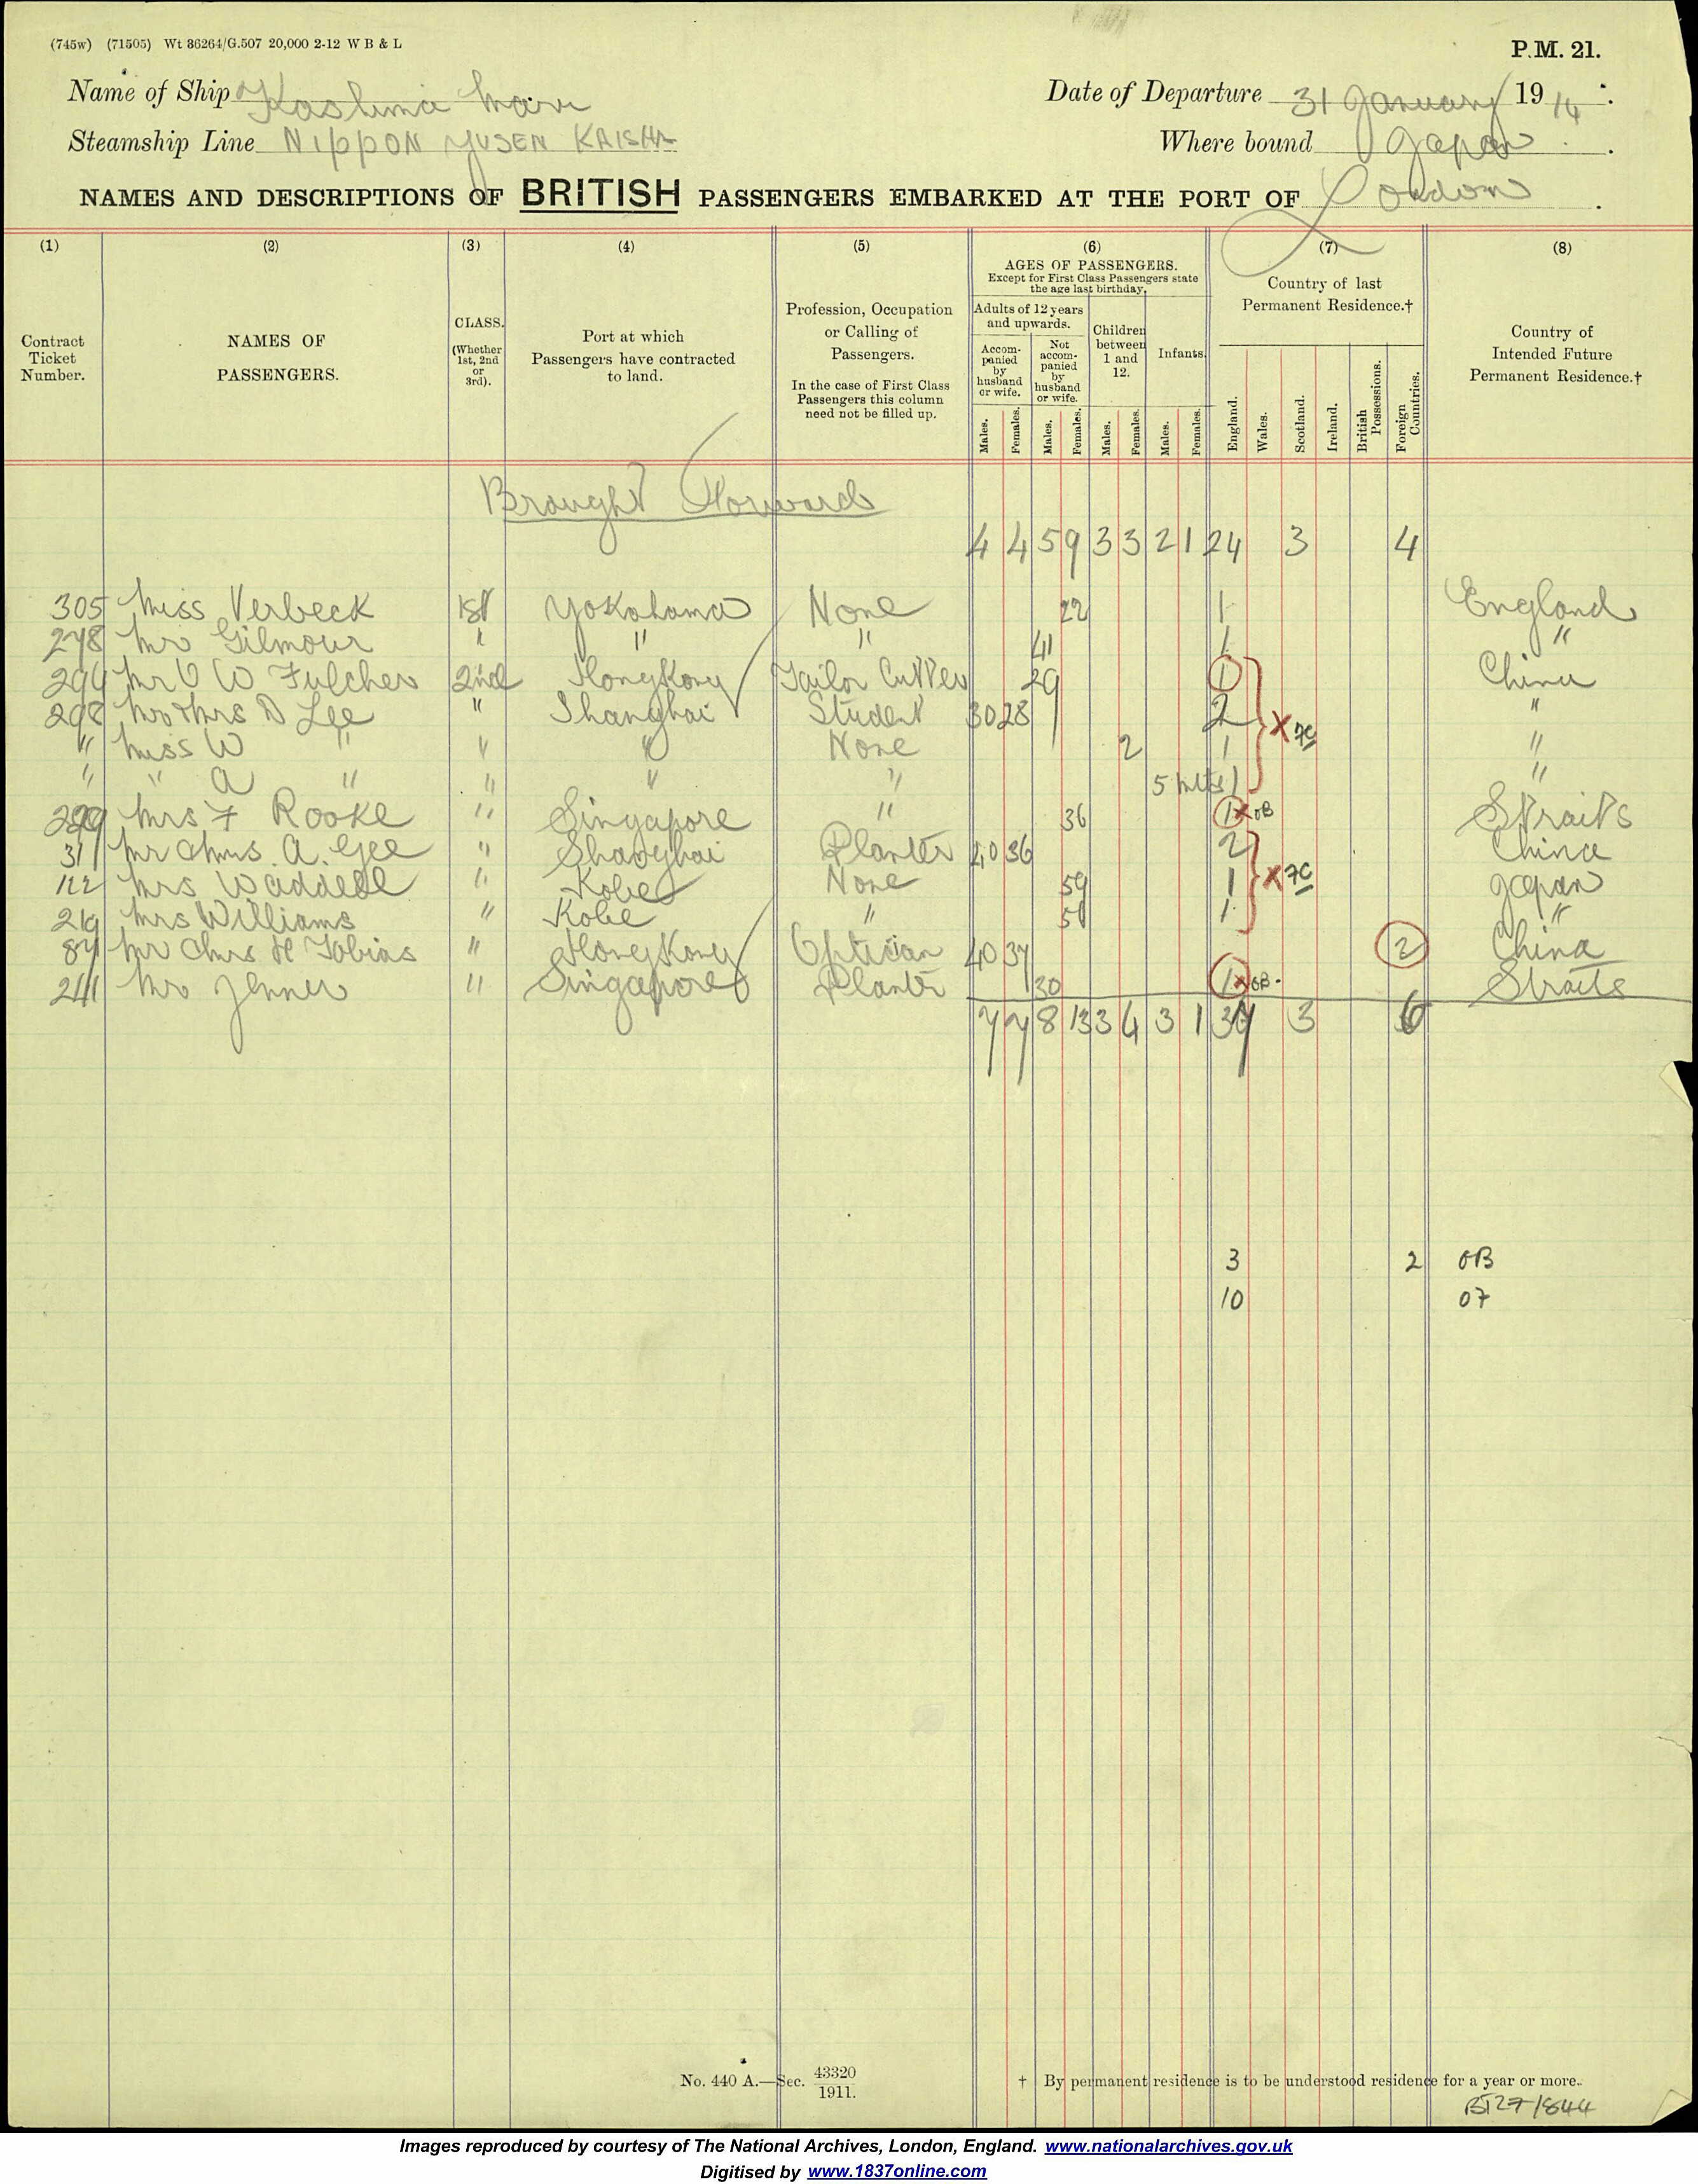 (745w) (71505) Wt 36264/G.507 20,000 2-12 W B & L
P.M. 21.
Name of Ship Kashima Maru
Date of Departure 31 January 1914.
Steamship Line NIPPON YUSEN KAISHA
Where bound Japan.
NAMES AND DESCRIPTIONS OF BRITISH PASSENGERS EMBARKED AT THE PORT OF London.
(1) (2) (3) (4) (5) (6) (7) (8)
Contract Ticket Number.
NAMES OF PASSENGERS.
CLASS. (Whether 1st, 2nd or 3rd).
Port at which Passengers have contracted to land.
Profession, Occupation or Calling of Passengers.
In the case of First Class Passengers this column need not be filled up.
AGES OF PASSENGERS.
Except for First Class Passengers state the age last birthday.
Adults of 12 years and upwards.
Accompanied by husband or wife.
Not accompanied by husband or wife.
Children between 1 and 12.
Infants.
Males. Females. Males. Females. Males. Females. Males. Females.
Country of last Permanent Residence.†
England. Wales. Scotland. Ireland. British Possessions. Foreign Countries.
Country of Intended Future Permanent Residence.†
Brought Forward
4 4 5 9 3 3 2 1 24 3 4
305 Miss Verbeck 1st Yokohama None 22 1 England
278 Mr Gilmour " " " 41 1 "
294 Mr V W Fulcher 2nd HongKong Tailor Cutter 29 1 China
298 Mr & Mrs D Lee " Shanghai Student 30 28 2 "
" Miss W " " " None 2 1 " X 7C
" " A " " " " 5 mths 1 "
299 Mrs F Rooke " Singapore " 36 1 x OB Straits
311 Mr & Mrs. A. Gee " Shanghai Planter 40 36 2 China
122 Mrs Waddell " Kobe None 59 1 X 7C Japan
219 Mrs Williams " Kobe " 50 1 "
87 Mr & Mrs H Tobias " HongKong Optician 40 37 2 China
241 Mr Jenner " Singapore Planter 30 1 x OB. Straits
7 7 8 13 3 4 3 1 37 3 6
3 2 OB
10 07
No. 440 A.—Sec. 43320/1911.
† By permanent residence is to be understood residence for a year or more.
BT27/844
Images reproduced by courtesy of The National Archives, London, England. www.nationalarchives.gov.uk
Digitised by www.1837online.com